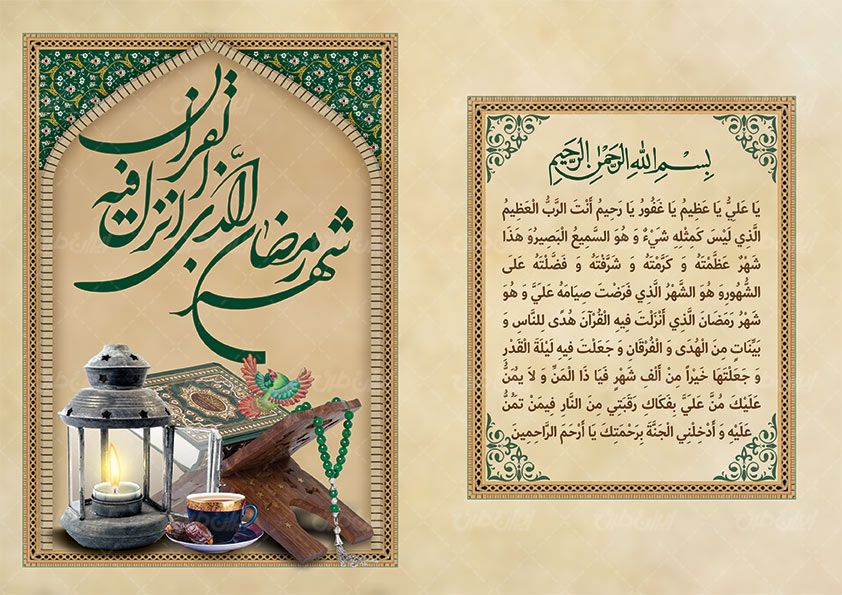 شهر رمضان الذی انزل فیه القرآن
بِسْمِ اللهِ الرَّحْمٰنِ الرَّحِيمِ
يَا عَلِيُّ يَا عَظِيمُ يَا غَفُورُ يَا رَحِيمُ أَنْتَ الرَّبُّ الْعَظِيمُ
الَّذِي لَيْسَ كَمِثْلِهِ شَيْءٌ وَ هُوَ السَّمِيعُ الْبَصِيرُوَ هَذَا
شَهْرٌ عَظَّمْتَهُ وَ كَرَّمْتَهُ وَ شَرَّفْتَهُ وَ فَضَّلْتَهُ عَلَى
الشُّهُورِوَ هُوَ الشَّهْرُ الَّذِي فَرَضْتَ صِيَامَهُ عَلَيَّ وَ هُوَ
شَهْرُ رَمَضَانَ الَّذِي أَنْزَلْتَ فِيهِ الْقُرْآنَ هُدًى لِلنَّاسِ وَ
بَيِّنَاتٍ مِنَ الْهُدَى وَ الْفُرْقَانِ وَ جَعَلْتَ فِيهِ لَيْلَةَ الْقَدْرِ
وَ جَعَلْتَهَا خَيْراً مِنْ أَلْفِ شَهْرٍ فَيَا ذَا الْمَنِّ وَ لَا يُمَنُّ
عَلَيْكَ مُنَّ عَلَيَّ بِفَكَاكِ رَقَبَتِي مِنَ النَّارِ فِيمَنْ تَمُنُّ
عَلَيْهِ وَ أَدْخِلْنِي الْجَنَّةَ بِرَحْمَتِكَ يَا أَرْحَمَ الرَّاحِمِينَ